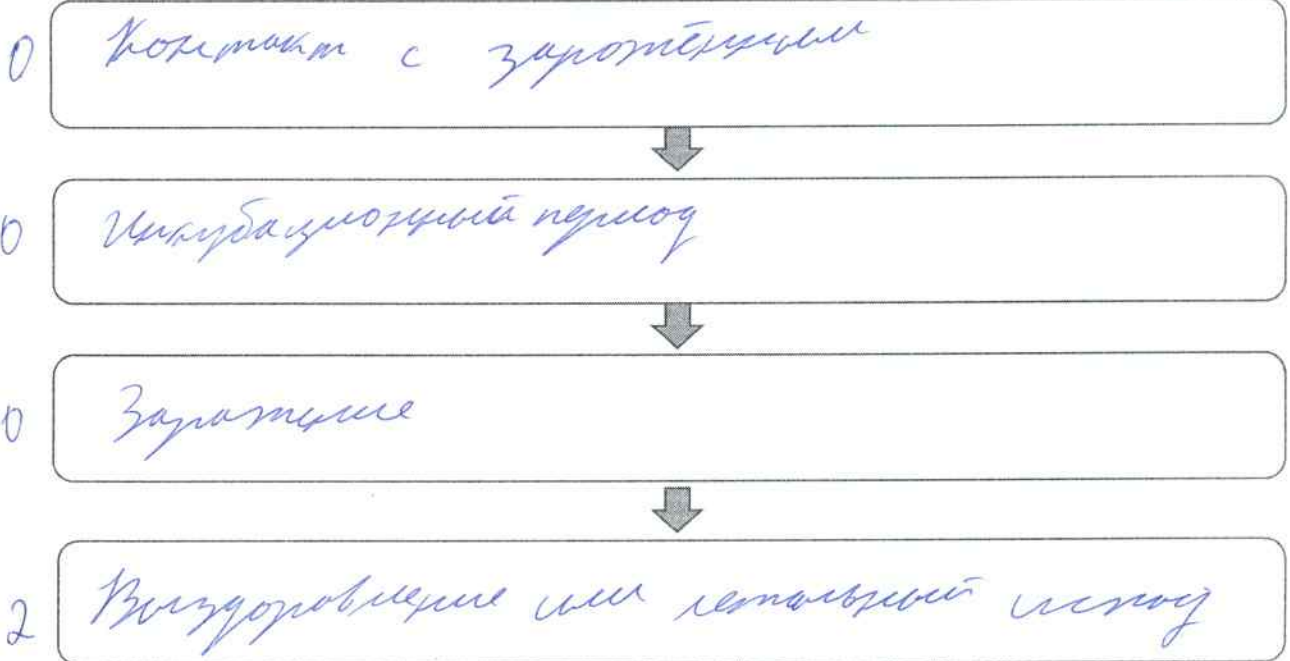 0 Контакт с заражённым
0 Инкубационный период
0 Заражение
2 Выздоровление или летальный исход